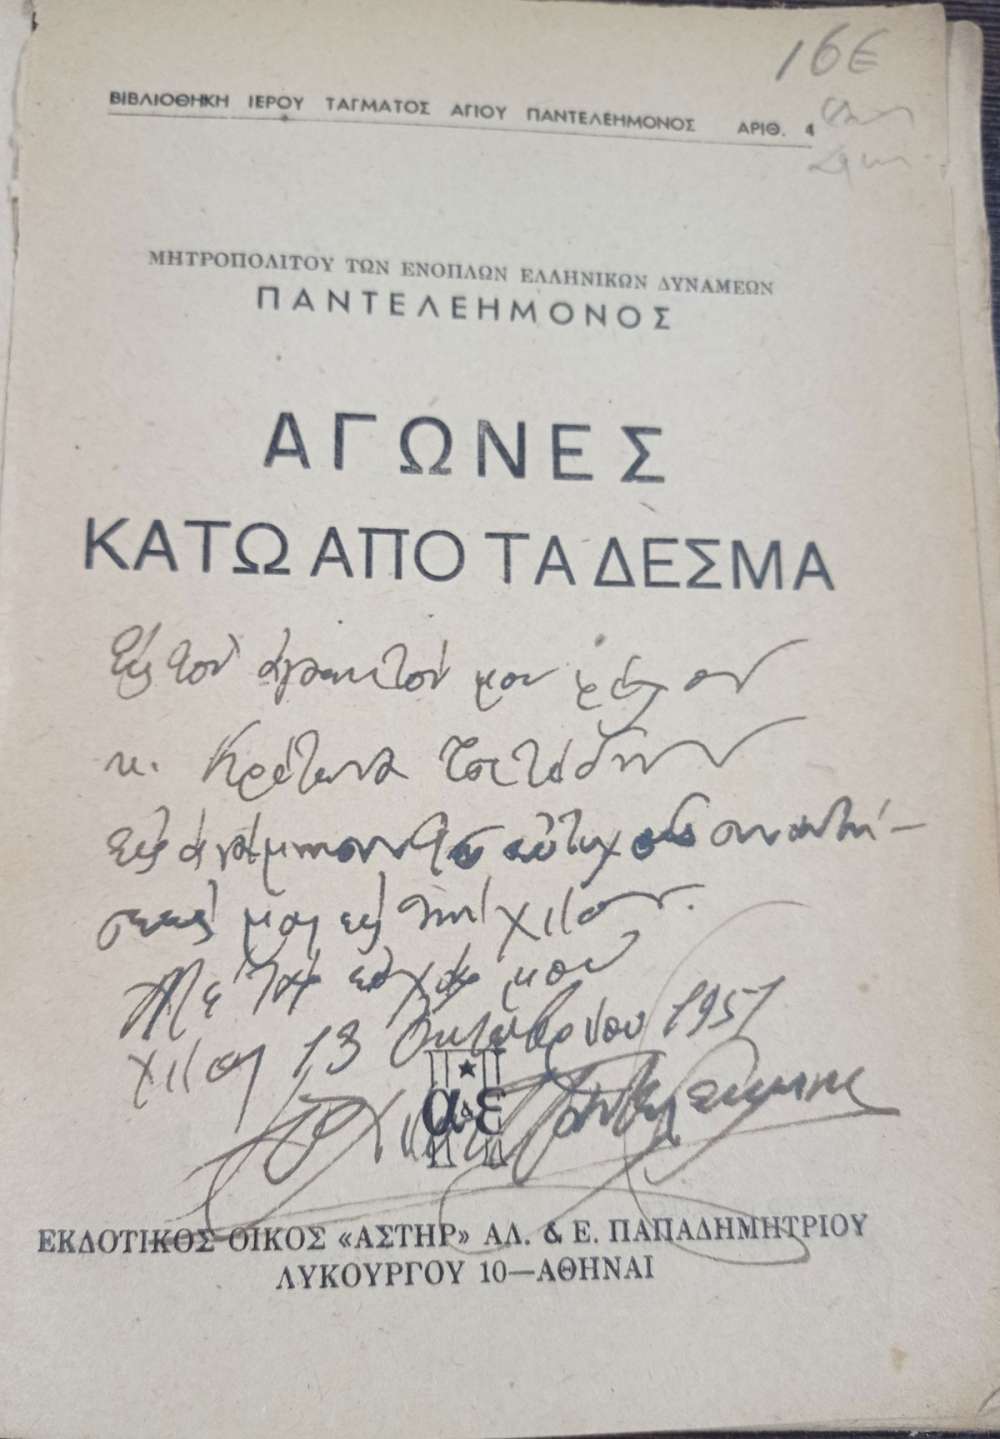 16€
ΒΙΒΛΙΟΘΗΚΗ ΙΕΡΟΥ ΤΑΓΜΑΤΟΣ ΑΓΙΟΥ ΠΑΝΤΕΛΕΗΜΟΝΟΣ ΑΡΙΘ. 4
ΜΗΤΡΟΠΟΛΙΤΟΥ ΤΩΝ ΕΝΟΠΛΩΝ ΕΛΛΗΝΙΚΩΝ ΔΥΝΑΜΕΩΝ
ΠΑΝΤΕΛΕΗΜΟΝΟΣ
ΑΓΩΝΕΣ
ΚΑΤΩ ΑΠΟ ΤΑ ΔΕΣΜΑ
Εἰς τὸν ἀγαπητόν μου φίλον
κ.
εἰς ἀνάμνησιν τῆς εὐτυχοῦς συναντή-
σεως μας εἰς τὴν Χίον.
Μὲ τὰς εὐχάς μου
Χίος 13 Ὀκτωβρίου 1951
Παντελεήμων
α & ε
ΕΚΔΟΤΙΚΟΣ ΟΙΚΟΣ «ΑΣΤΗΡ» ΑΛ. & Ε. ΠΑΠΑΔΗΜΗΤΡΙΟΥ
ΛΥΚΟΥΡΓΟΥ 10—ΑΘΗΝΑΙ